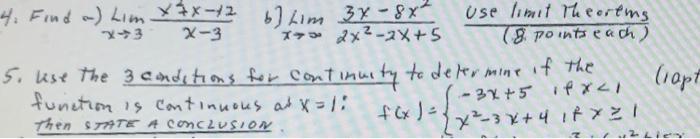 4. Find a) Lim x→3 (x²+x-12)/(x-3) b) Lim x→∞ (3x-8x²)/(2x²-2x+5) Use limit Theorems (8 points each)
5. Use The 3 conditions for continuity to determine if the (10pt
function is continuous at x=1: f(x)={ -3x+5 if x<1
Then STATE A CONCLUSION. x²-3x+4 if x≥1